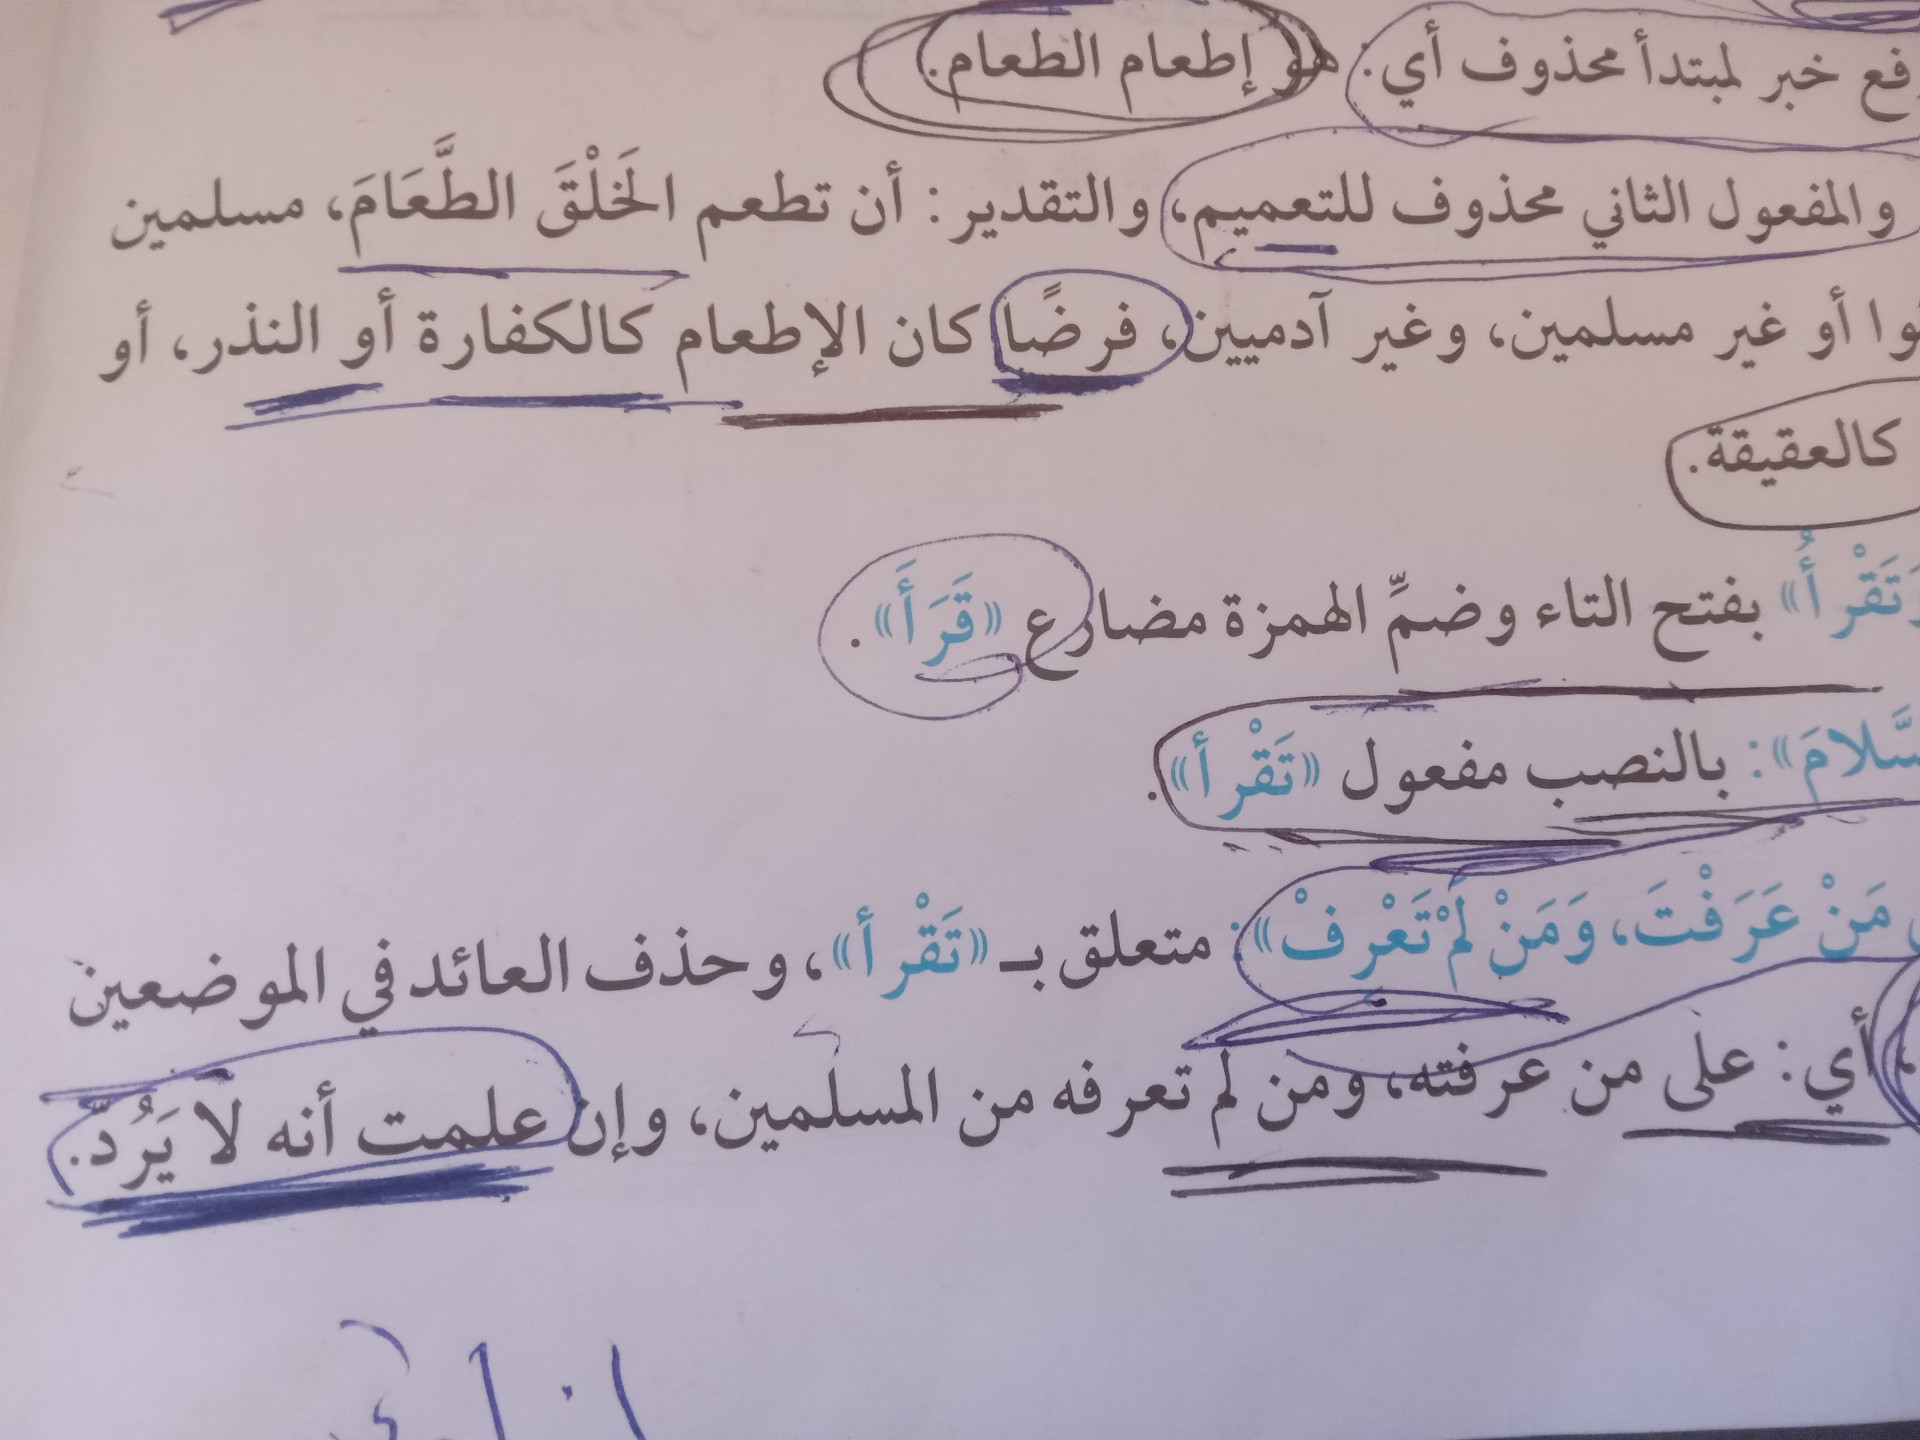 خبر لمبتدأ محذوف أي: هو إطعام الطعام.
والمفعول الثاني محذوف للتعميم، والتقدير: أن تطعم الخَلْقَ الطَّعَامَ، مسلمين
أو غير مسلمين، وغير آدميين، فرضًا كان الإطعام كالكفارة أو النذر، أو
كالعقيقة.
تَقْرأُ» بفتح التاء وضمِّ الهمزة مضارع «قَرَأَ».
بالنصب مفعول «تَقْرأ».
مَنْ عَرَفْتَ، وَمَنْ لَمْ تَعْرِفْ»: متعلق بـ «تَقْرأ»، وحذف العائد في الموضعين
أي: على من عرفته، ومن لم تعرفه من المسلمين، وإن علمت أنه لا يَرُدّ.